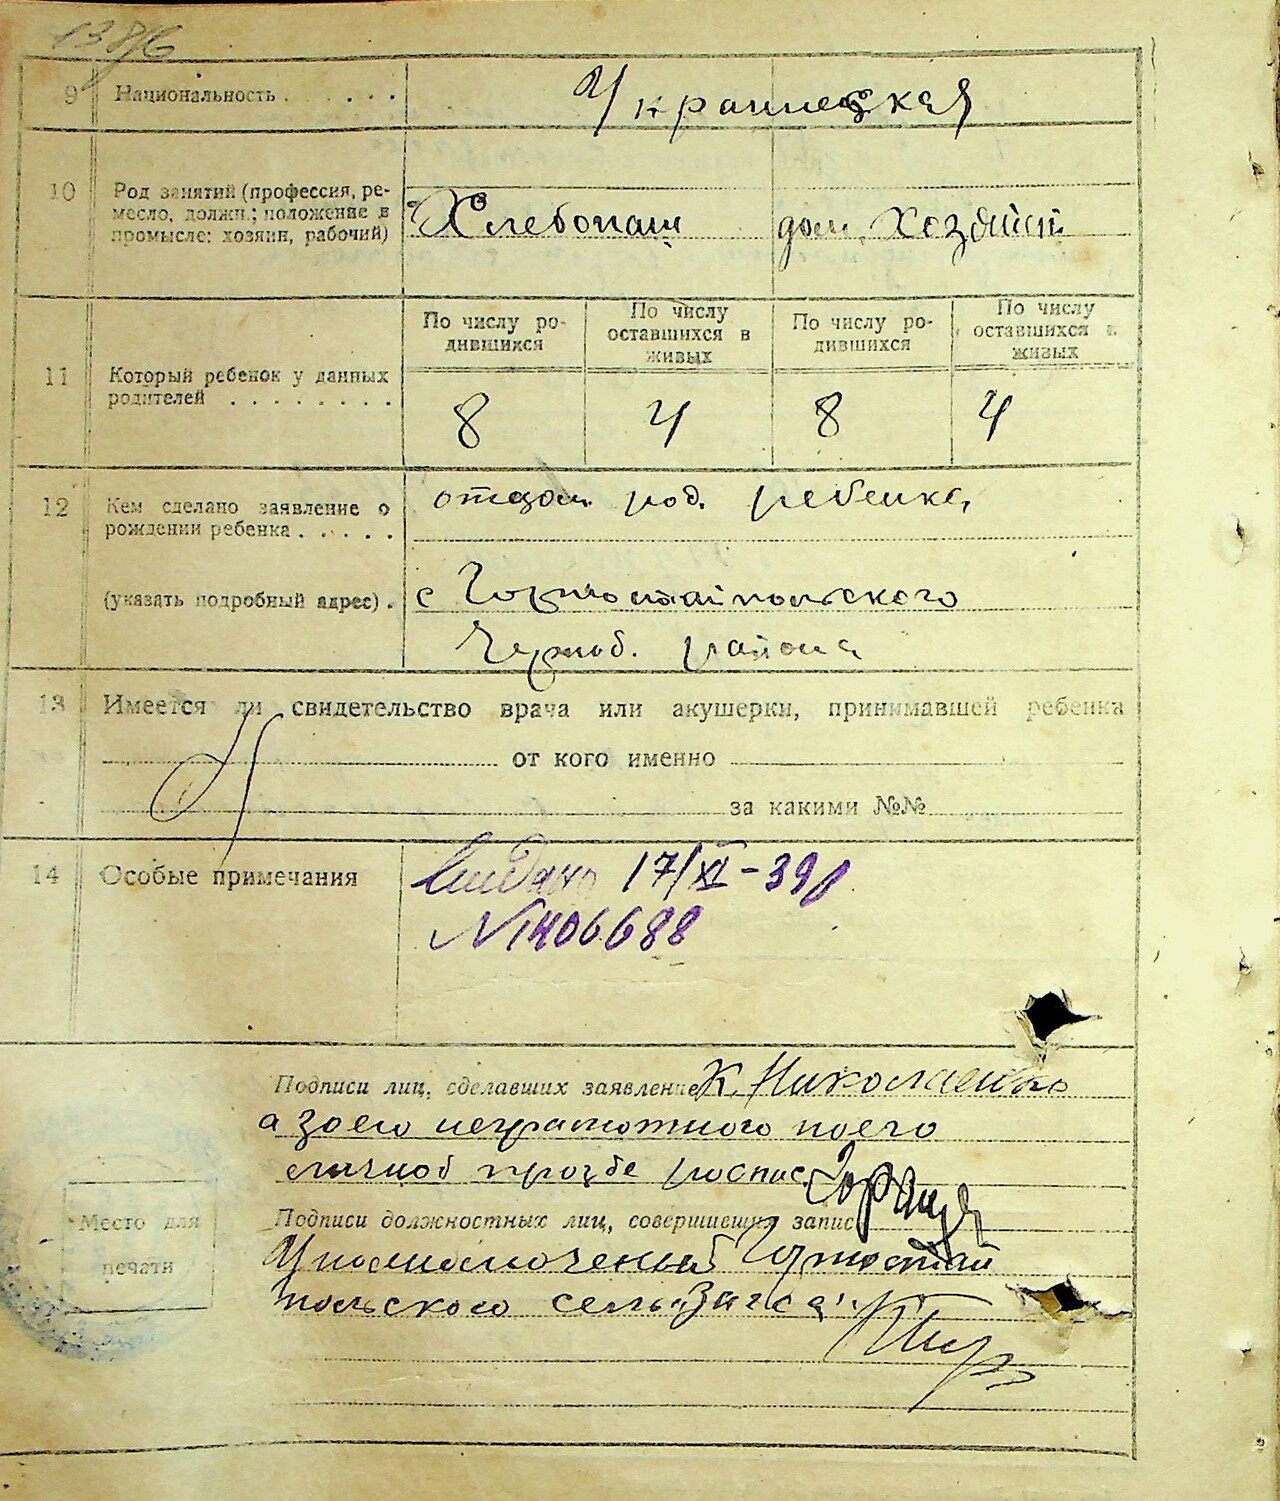 138/6
9 Национальность . . . . . . Украинская
10 Род занятий (профессия, ре-
месло, должн.; положение в
промысле: хозяин, рабочий)
Хлебопаш дом. Хозяйст
11 Который ребенок у данных
родителей . . . . . . . .
По числу ро-
дившихся
По числу
оставшихся в
живых
По числу ро-
дившихся
По числу
оставшихся в
живых
8 4 8 4
12 Кем сделано заявление о
рождении ребенка . . . . .
отцом род. ребенка,
(указать подробный адрес) .
с Горностайпольского
Черноб. района
13 Имеется ли свидетельство врача или акушерки, принимавшей ребенка
от кого именно
за какими №№
14 Особые примечания
Видано 17/XI-39р
N 1406688
Подписи лиц, сделавших заявление К. Николаенко
а за его неграмотного по его
личной прозбе роспис.
Подписи должностных лиц, совершивших запис
Место для
печати
Уполномоченый Горностай
польского сель"Загса"